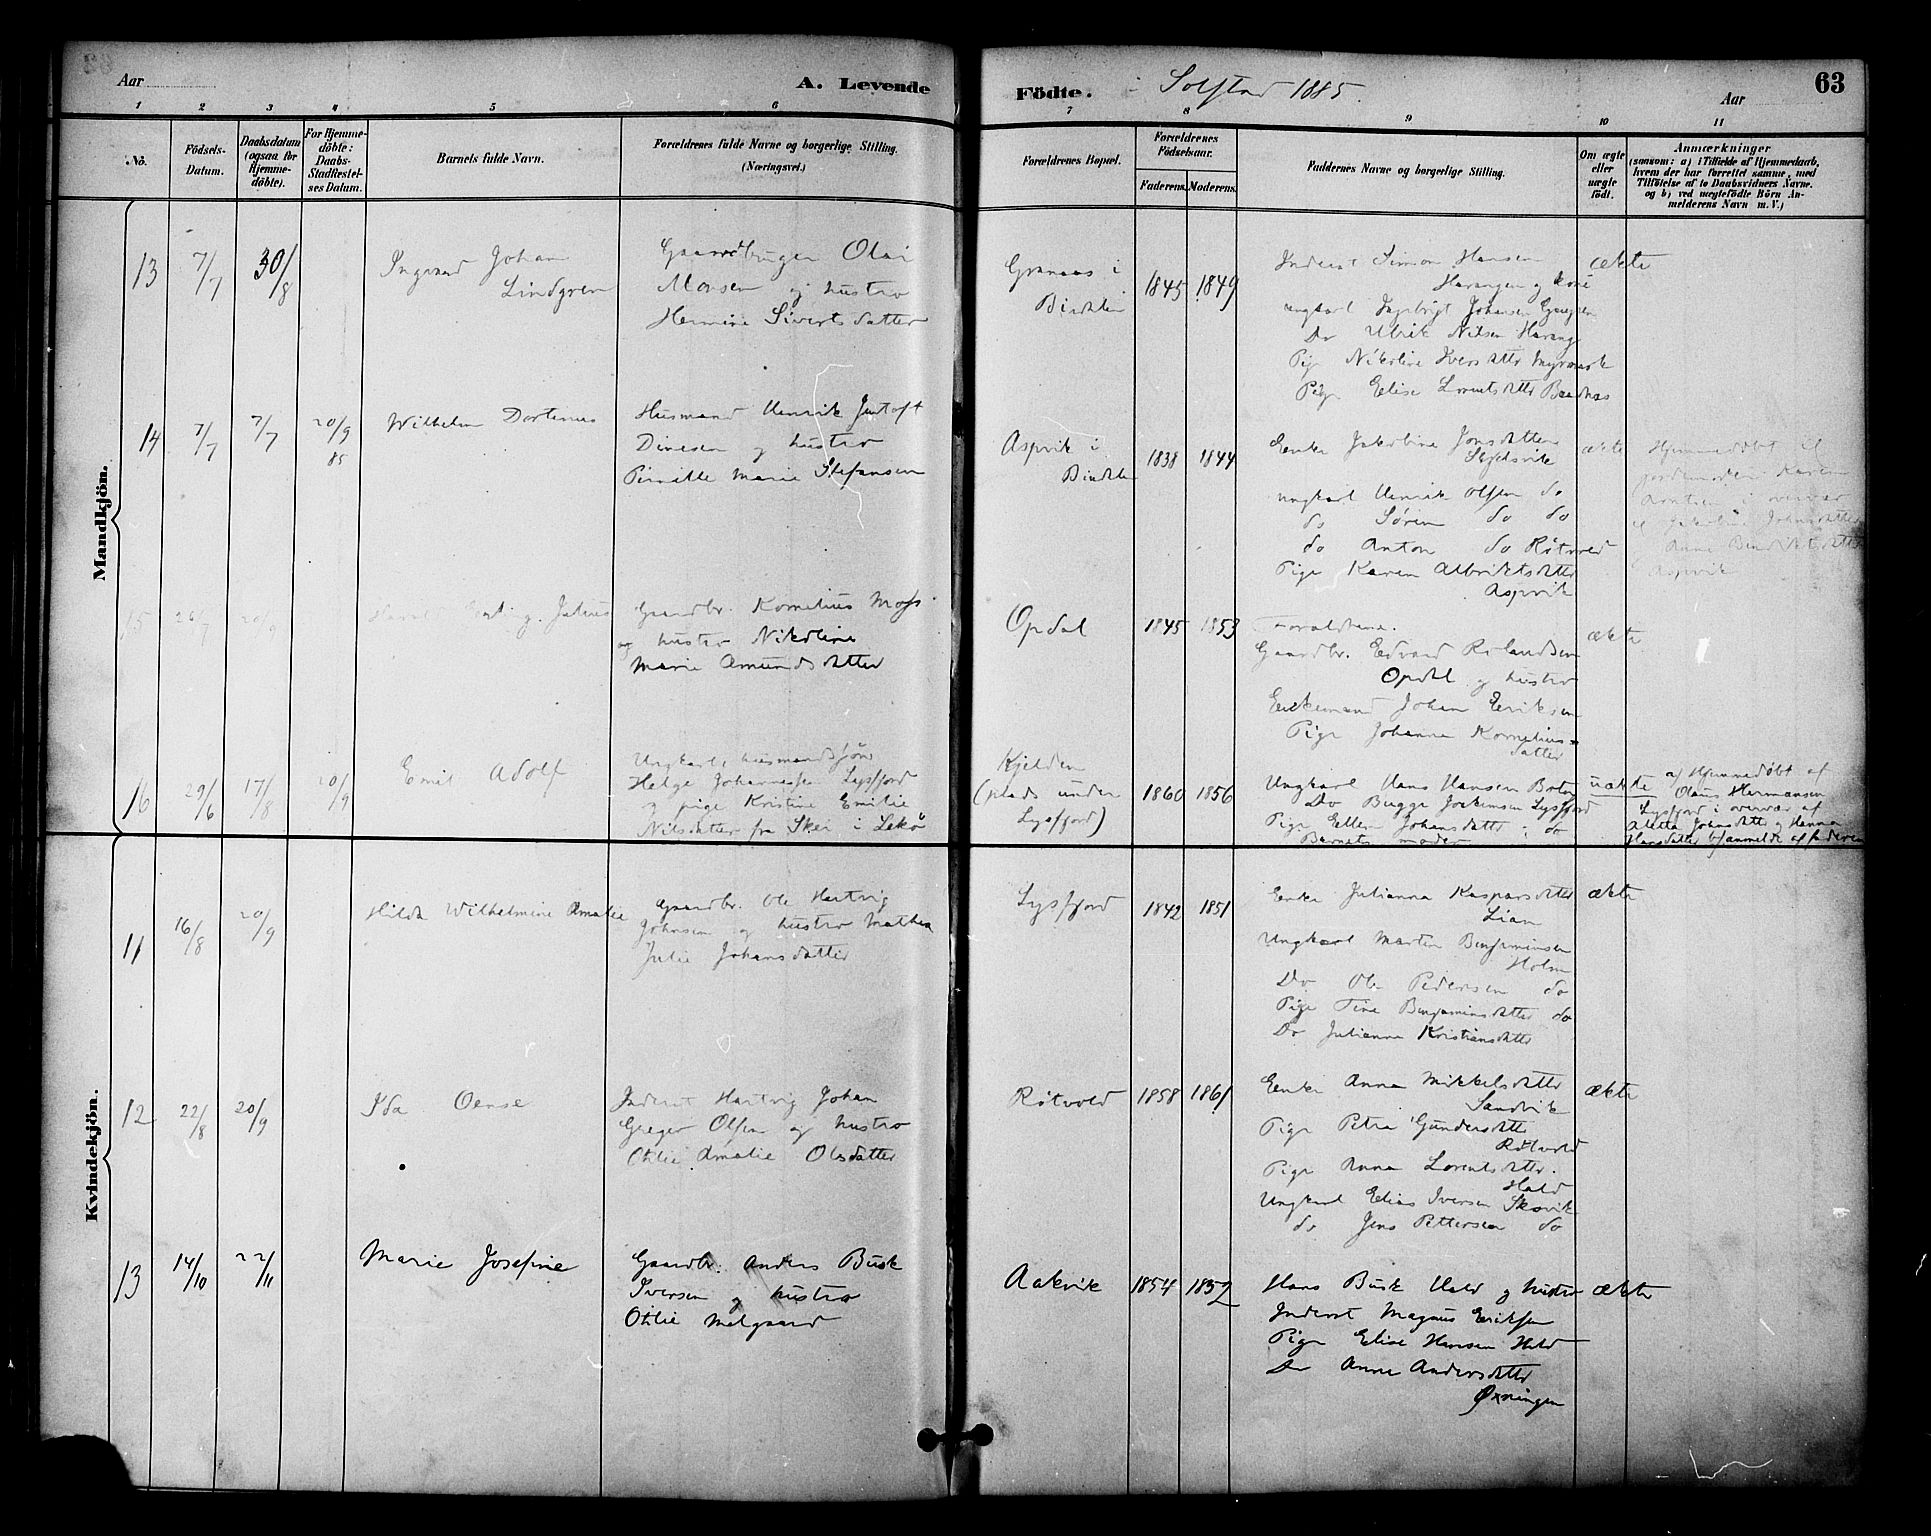 Aar
A. Levende
Fødte.
Solstad 1885.
Aar
63
1 2 3 4 5 6 7 8 9 10 11
No.
Födsels-
Datum.
Daabsdatum
(ogsaa for
Hjemme-
döbte).
For Hjemme-
döbte:
Daabs-
Stadfæstel-
ses Datum.
Barnets fulde Navn.
Forældrenes fulde Navne og borgerlige Stilling.
(Næringsvei.)
Forældrenes Bopæl.
Forældrenes
Födselsaar.
Faderens. Moderens.
Faddernes Navne og borgerlige Stilling.
Om ægte
eller
uægte
födt.
Anmærkninger
(saasom: a) i Tilfælde af Hjemmedaab,
hvem der har forrettet samme, med
Tilföielse af to Daabsvidners Navne.
og b) ved uægtefödte Börn An-
melderens Navn m. V.)
Mandkjön.
13
7/7
30/8
Ingvard Johan
Lindgren
Gaardbruger Olai
Monsen og hustro
Hermine Sivertsdatter
Granaas i
Bindalen
1845
1849
Inderst Simon Hansen
Harangen og kone
ungkarl Ingebrigt Johansen
Do Ulrik Nilsen Harang
Pige Nikoline Iversdatter
Pige Elise Lorentsdatter
ækte
14
7/7
7/7
20/9
85
Wilhelm Dortenus
Husmand Henrik
Dinesen og hustro
Pernille Marie Stefansen
Aspvik i
Bindalen
1838
1844
Enke Jakobine Jonsdatter
ungkarl Henrik Olsen do
do Sören do do
do Anton do Røtvold
Pige Karen Albriktsdatter
Aspvik
ækte
Hjemmedøbt af
jordemoder Karen
i overvær
af Johnsdatter
Anne
Aspvik
15
26/7
20/9
Julius
Gaardbr. Kornelius Moss
og hustro Nikoline
Marie Amundsdatter
Opdal
1845
1853
Forældrene.
Gaardbr. Edvard Rolandsen
Opdal og hustro
Enkemand Johan Eriksen
Pige Johanna Kornelius=
datter
ækte
16
29/6
17/8
20/9
Emil Adolf
Ungkarl, husmandssön
Helge Johannessen Lysfjord
og pige Kristine Emilie
Nilsdatter fra Skei i Lekö
Kjelden
(plads under
Lysfjord)
1860
1856
Ungkarl Hans Hansen
Do Bugge Joakimsen Lysfjord
Pige Ellen Johansdatter do
Barnets moder
uækte
a) Hjemmedøbt af
Olaus Hermansen
Lysfjord i overvær af
Aletta Johnsdatter og Hanna
Hansdatter b) anmeldt af faderen
Kvindekjön.
11
16/8
20/9
Hilda Wilhelmine Amalie
Gaardbr. Ole Hartvig
Johnsen og hustro Mathea
Julie Johansdatter
Lysfjord
1842
1851
Enke Julianna Kasparsdatter
Lian
Ungkarl Martin Benjaminsen
Holm
Do Ole Pedersen do
Pige Tine Benjaminsdatter do
Do Julianna Kristiansdatter
ækte
12
22/8
20/9
Ida Oense
Inderst Hartvig Johan
Greger Olsen og hustro
Otilie Amalie Olsdatter
Røtvold
1858
1861
Enke Anna Mikkelsdatter
Sandvik
Pige Petra Gundersdatter
Røtvold
Pige Anna Lorentsdatter.
Hald
Ungkarl Elias Iversen Skovik
do Jens Pettersen do
ækte
13
14/10
22/11
Marie Josefine
Gaardbr. Anders Busk
Iversen og hustro
Otilie Melgaard
Aakvik
1854
1852
Hans Busk Hald og hustro
Inderst Magnus Eriksen
Pige Elise Hansen Hald
Do Anne Andersdatter
Øxningen
ækte